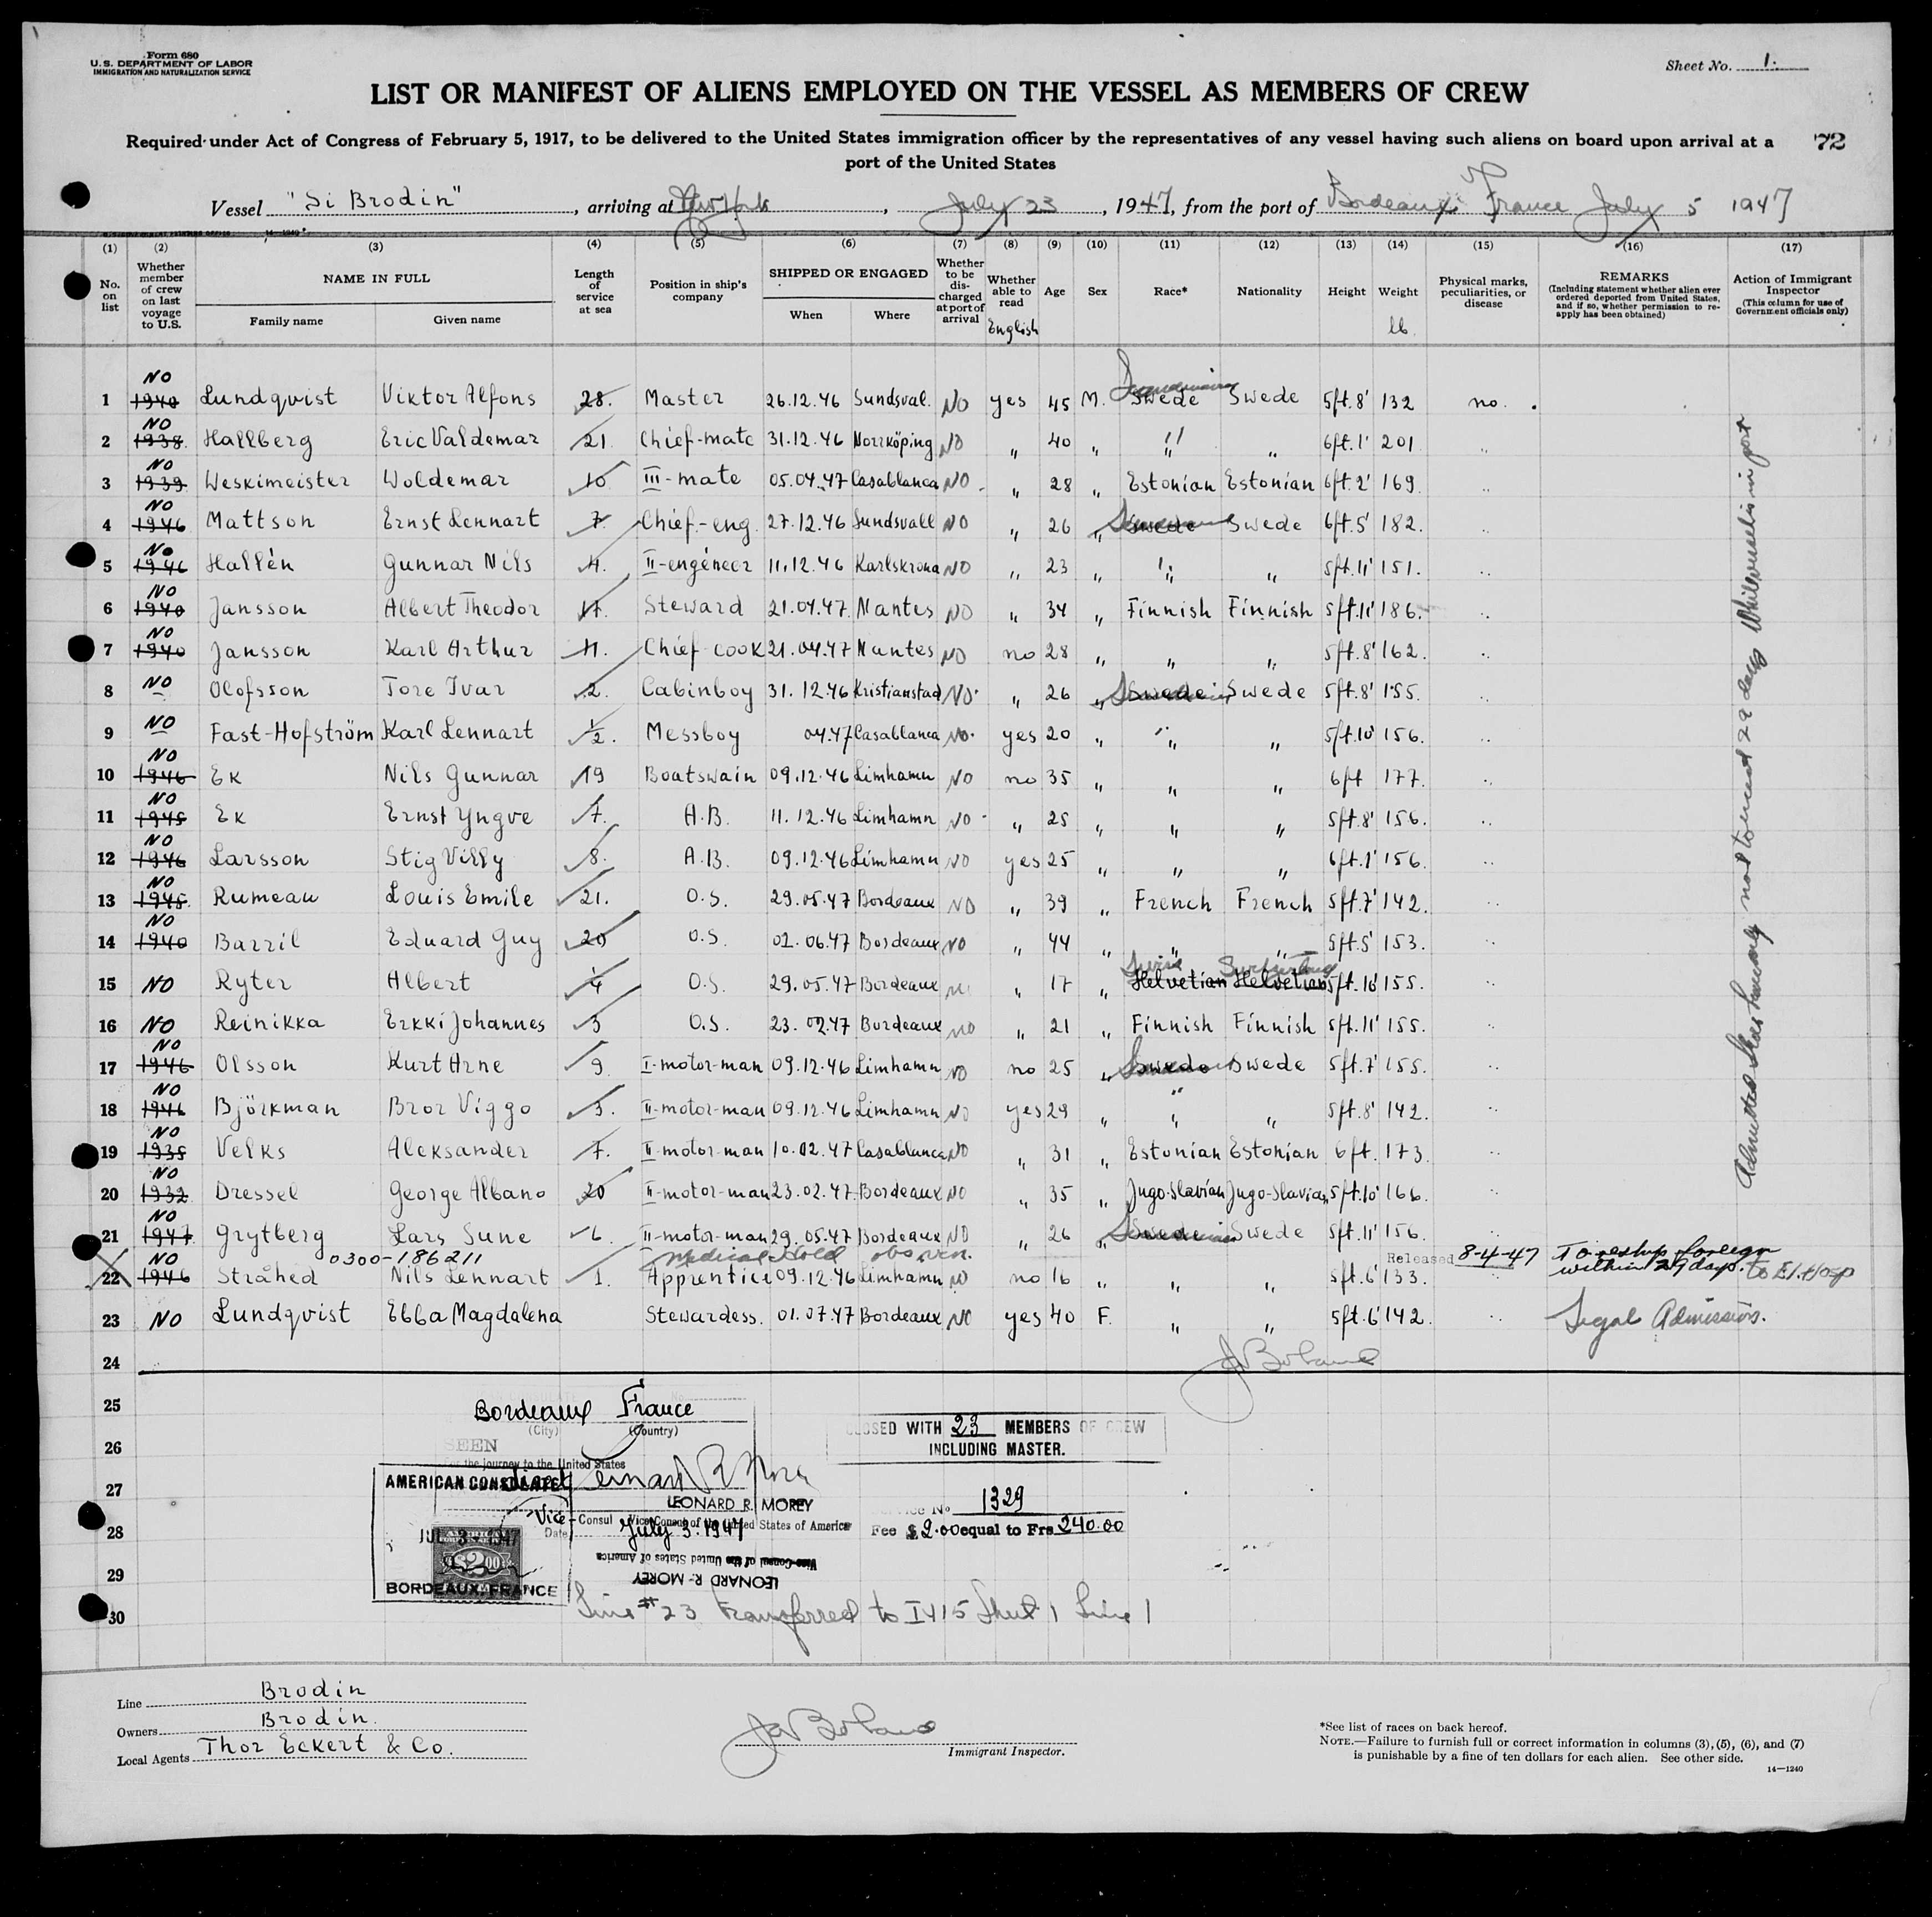 Form 680
U.S. DEPARTMENT OF LABOR
IMMIGRATION AND NATURALIZATION SERVICE
Sheet No. 1.
LIST OR MANIFEST OF ALIENS EMPLOYED ON THE VESSEL AS MEMBERS OF CREW
Required under Act of Congress of February 5, 1917, to be delivered to the United States immigration officer by the representatives of any vessel having such aliens on board upon arrival at a
port of the United States
72
Vessel "Si Brodin", arriving at New York, July 23, 1947, from the port of Bordeaux France July 5 1947
(1) (2) (3) (4) (5) (6) (7) (8) (9) (10) (11) (12) (13) (14) (15) (16) (17)
No. on list
Whether member of crew on last voyage to U.S.
NAME IN FULL
Family name
Given name
Length of service at sea
Position in ship's company
SHIPPED OR ENGAGED
When
Where
Whether to be discharged at port of arrival
Whether able to read English
Age
Sex
Race*
Nationality
Height
Weight lb.
Physical marks, peculiarities, or disease
REMARKS
(Including statement whether alien ever ordered deported from United States, and if so, whether permission to reapply has been obtained)
Action of Immigrant Inspector
(This column for use of Government officials only)
1 NO 1940 Lundqvist Viktor Alfons 28. Master 26.12.46 Sundsval. NO yes 45 M. Scandinavian Swede Swede 5ft.8' 132 no.
2 NO 1938 Hallberg Eric Valdemar 21. Chief-mate 31.12.46 Norrköping NO " 40 " " " 6ft.1' 201 "
3 NO 1939 Weskimeister Woldemar 10 III-mate 05.04.47 Casablanca NO " 28 " Estonian Estonian 6ft.2' 169 "
4 NO 1946 Mattson Ernst Lennart 7. Chief-eng. 27.12.46 Sundsvall NO " 26 " Swede Swede 6ft.5' 182. "
5 NO 1946 Hallén Gunnar Nils 4. II-engéneer 11.12.46 Karlskrona NO " 23 " " " 5ft.11' 151. "
6 NO 1940 Jansson Albert Theodor 11. Steward 21.04.47. Nantes NO " 34 " Finnish Finnish 5ft.11' 186. "
7 NO 1940 Jansson Karl Arthur 11. Chief cook 21.04.47 Nantes NO no 28 " " " 5ft.8' 162. "
8 NO Olofsson Tore Ivar 2. Cabinboy 31.12.46 Kristianstad NO " 26 " Swede Swede 5ft.8' 155. "
9 NO Fast-Hofström Karl Lennart 1/2. Messboy 04.47 Casablanca NO yes 20 " " " 5ft.10' 156. "
10 NO 1946 Ek Nils Gunnar 19 Boatswain 09.12.46 Limhamn NO no 35 " " " 6ft 177. "
11 NO 1945 Ek Ernst Yngve 7. A.B. 11.12.46 Limhamn NO " 25 " " " 5ft.8' 156. "
12 NO 1946 Larsson Stig Villy 8. A.B. 09.12.46 Limhamn NO yes 25 " " " 6ft.1' 156. "
13 NO 1945. Rumeau Louis Emile 21. O.S. 29.05.47 Bordeaux NO " 39 " French French 5ft.7' 142. "
14 NO 1940 Barril Eduard Guy 20 O.S. 02.06.47 Bordeaux NO " 44 " " " 5ft.5' 153. "
15 NO Ryter Albert 1/4 O.S. 29.05.47 Bordeaux NO " 17 " Swiss Helvetian Switzerland Helvetian 5ft.10' 155. "
16 NO Reinikka Erkki Johannes 3 O.S. 23.02.47 Bordeaux NO " 21 " Finnish Finnish 5ft.11' 155. "
17 NO 1946 Olsson Kurt Arne 9 I-motor-man 09.12.46 Limhamn NO no 25 " Swede Swede 5ft.7' 155. "
18 NO 1946 Björkman Bror Viggo 3. II-motor-man 09.12.46 Limhamn NO yes 29 " " " 5ft.8' 142. "
19 NO 1935 Velks Aleksander 7. II-motor-man 10.02.47 Casablanca NO " 31 " Estonian Estonian 6ft. 173. "
20 NO 1932 Dressel George Albano 20 II-motor-man 23.02.47. Bordeaux NO " 35 " Jugo-Slavian Jugo-Slavian 5ft.10' 166. "
21 NO 1947 Grytberg Lars Sune 6. II-motor-man 29.05.47 Bordeaux NO " 26 " Swede Swede 5ft.11' 156. "
0300-186211 Medical Hold observn. Released 8-4-47 To reship foreign within 29 days. to E.I. Hosp
22 NO 1946 Stråhed Nils Lennart 1. Apprentice 09.12.46 Limhamn NO no 16 " " " 5ft.6' 133. "
23 NO Lundqvist Ebba Magdalena Stewardess. 01.07.47 Bordeaux NO yes 40 F. " " 5ft.6' 142. " Legal Admission.
24
25
26
27
28
29
30
Admitted as seamen only not to exceed 29 days while vessel is in port
Bordeaux France
(City) (Country)
SEEN
For the journey to the United States
AMERICAN CONSULATE
LEONARD R. MOREY
Vice Consul of the United States of America
Date July 3. 1947
JUL 3 - 1947
$2.00
BORDEAUX, FRANCE
Vice-Consul of the United States of America
LEONARD R. MOREY
CLOSED WITH 23 MEMBERS OF CREW
INCLUDING MASTER.
Service No 1329
Fee $2.00 equal to Frs 240.00
Line #23 transferred to I 415 Sheet 1 Line 1
Line Brodin
Owners Brodin.
Local Agents Thor Eckert & Co.
Immigrant Inspector.
*See list of races on back hereof.
NOTE.—Failure to furnish full or correct information in columns (3), (5), (6), and (7)
is punishable by a fine of ten dollars for each alien. See other side.
14—1240